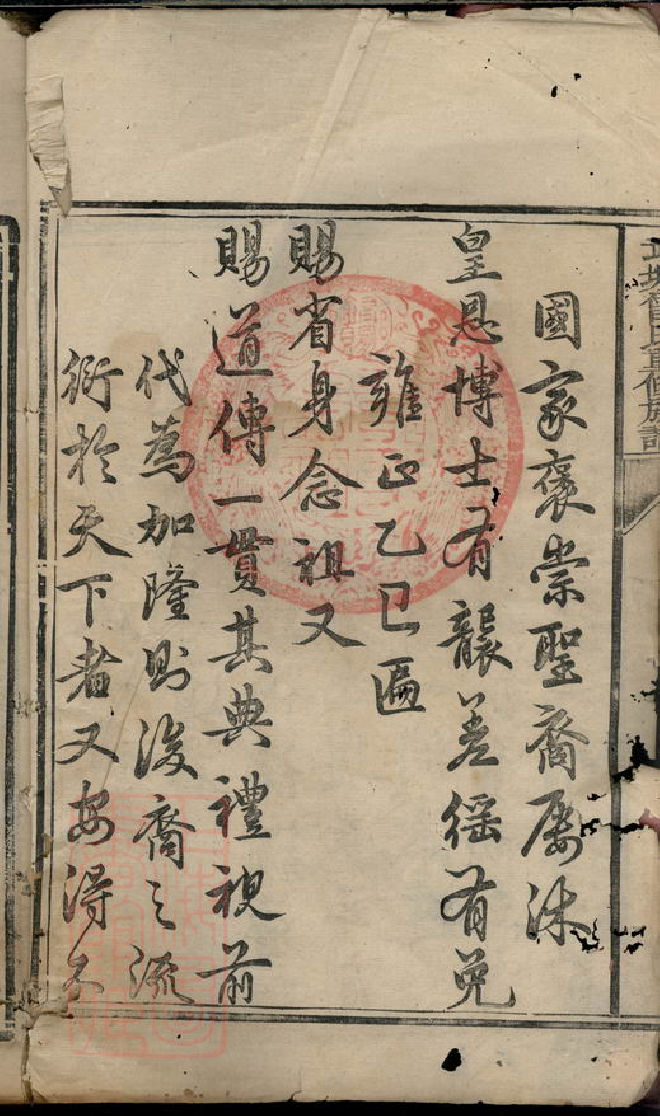 武城曾氏重修族譜
國家褒崇聖裔屢沐
皇恩博士有襲差徭有免
雍正乙巳匾
賜省身念祖又
賜道傳一貫其典禮視前
代為加隆則後裔之流
衍於天下者又安得不